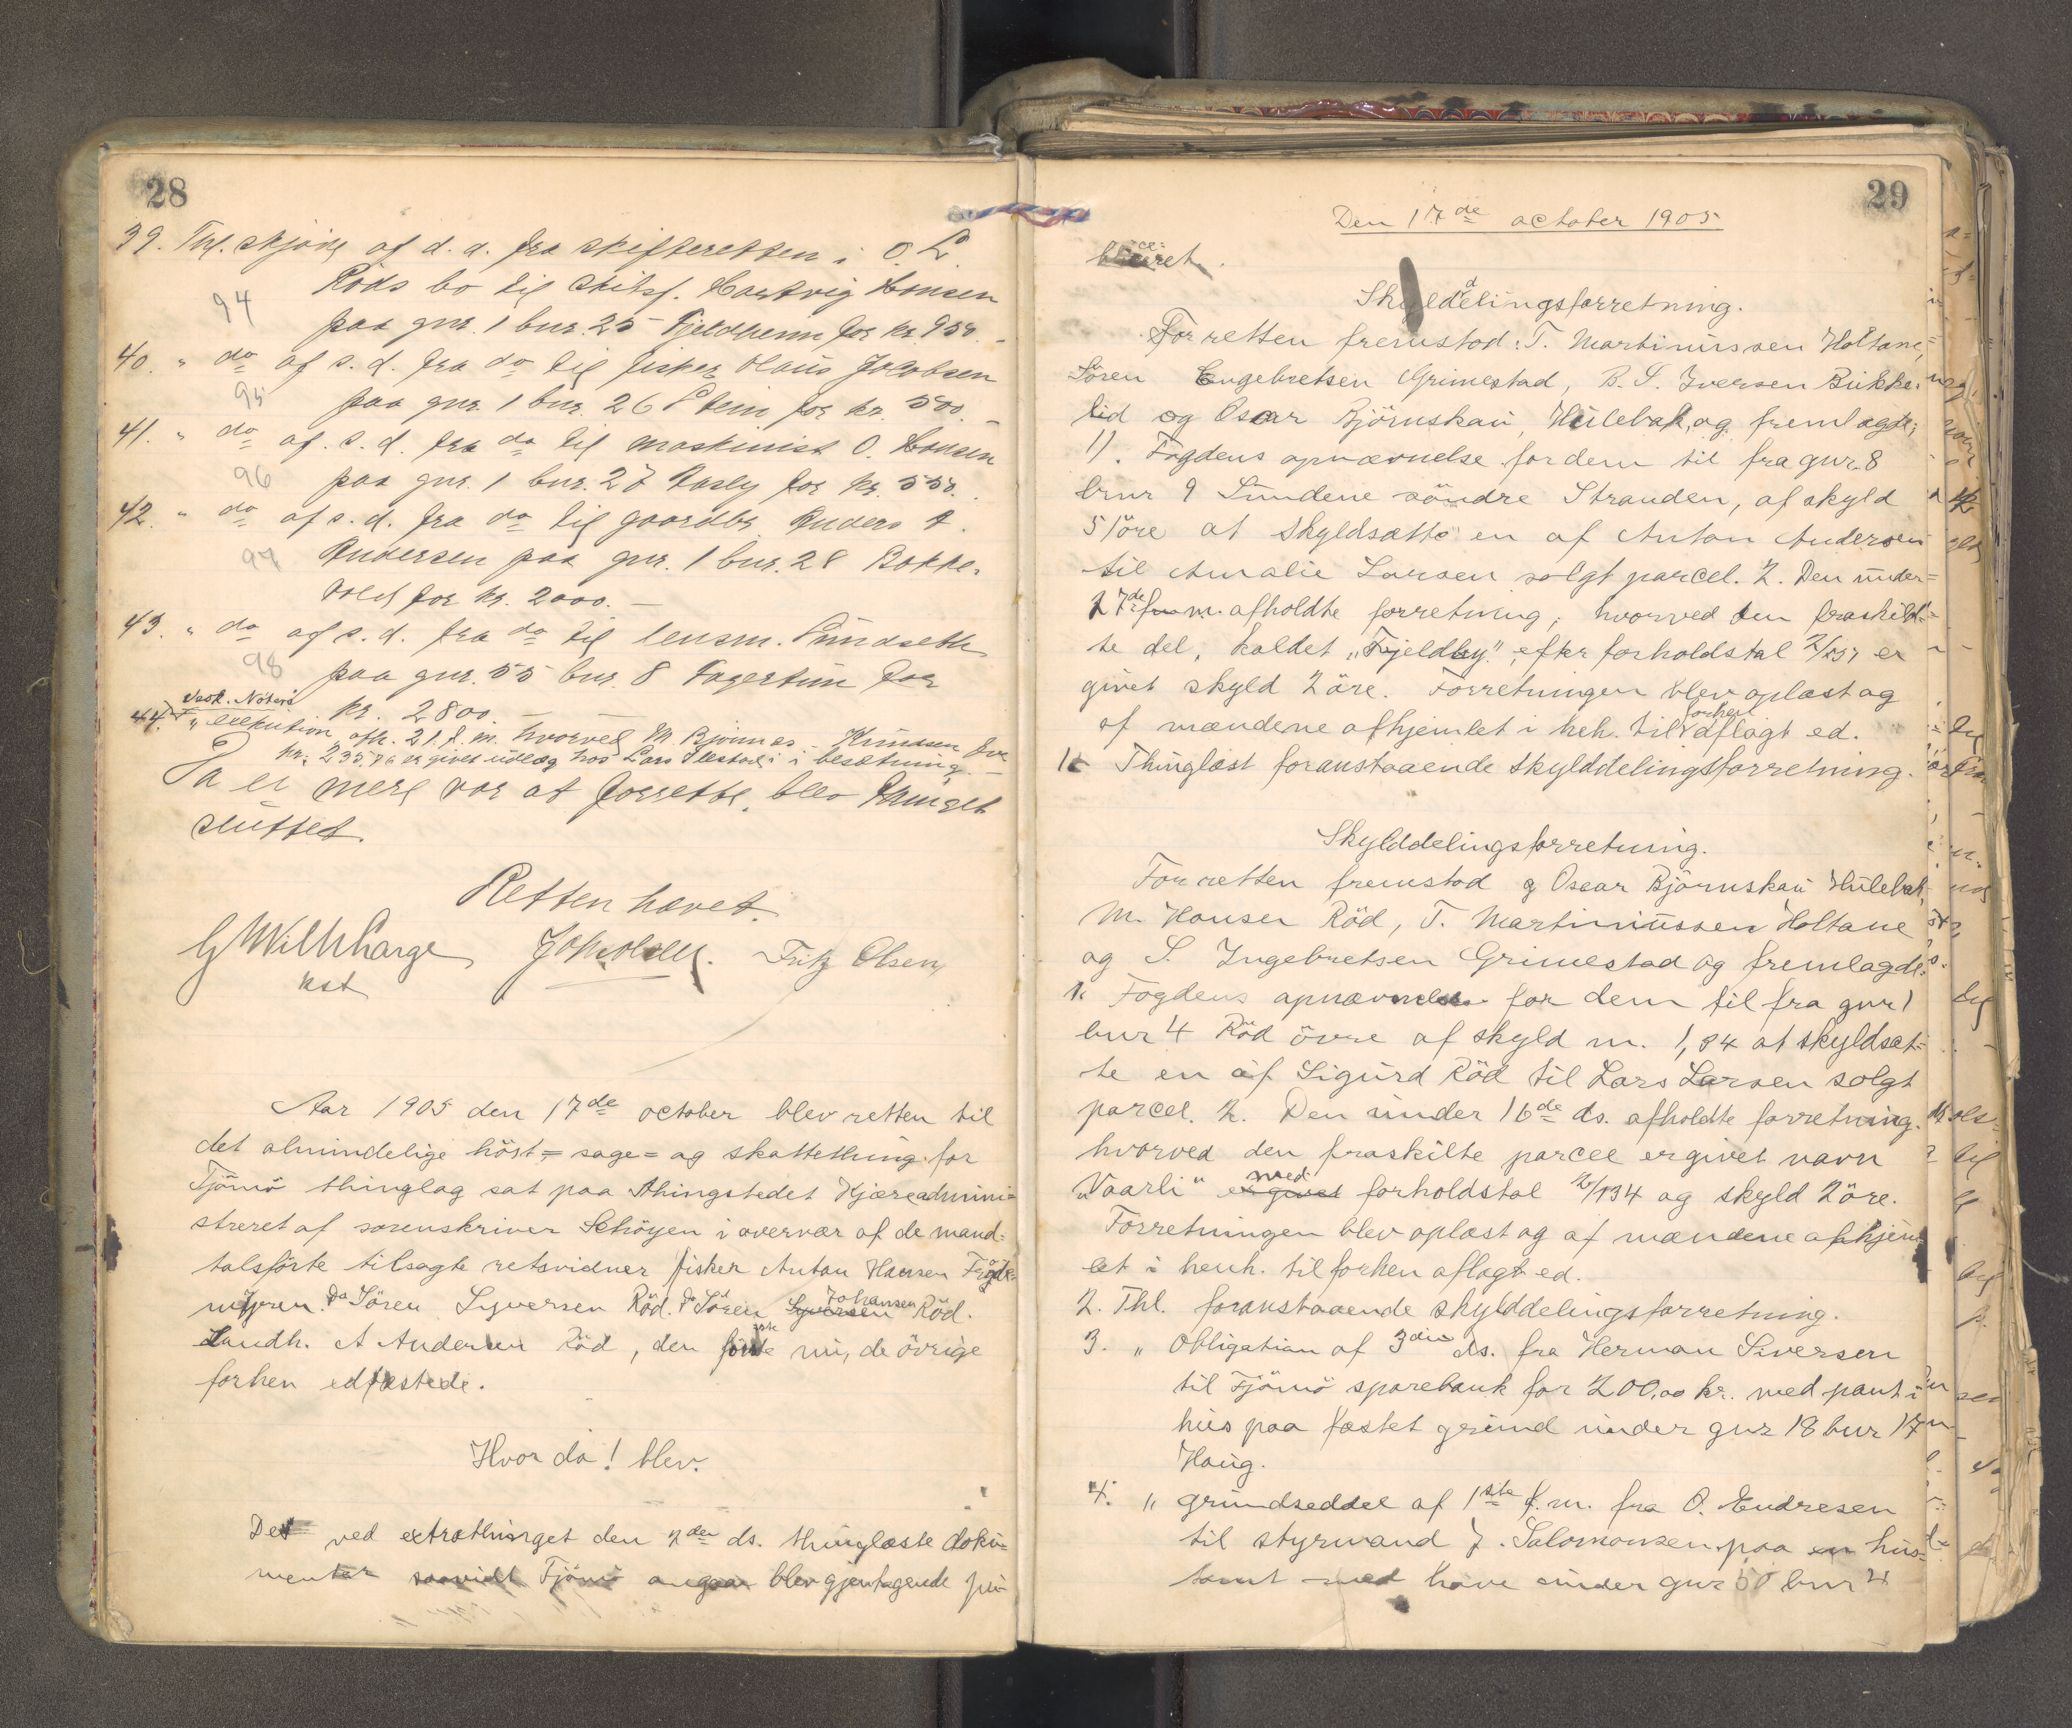 28
39. Thl. skjöte af d. d. fra skifteretten i O. L.
Röds bo til skibsf. Hartvig Hansen
94
paa gnr. 1 bnr. 25 Fjeldheim for kr. 950.
40. " do af s. d. fra do til fisker Olaus Jakobsen
95
paa gnr. 1 bnr. 26 for kr. 500. –
41. " do af s. d. fra do til maskinist O. Hansen
96
paa gnr. 1 bnr. 27 for kr. 550.
42. " do af s. d. fra do til gaardbr. Anders A.
97
Andersen paa gnr. 1 bnr. 28 Bakke-
vold for kr. 2000. –
43. " do af s. d. fra do til lensm. Sundseth
98
paa gnr. 55 bnr. 8 Fagertun for
kr. 2800. –
44. " execution afh. 21 f. m. hvorved M. Bjönnes – Knudsen for
kr. 235,76 er givet udlæg hos Lars i besætning. –
Da ei mere var at forrette, blev thinget
sluttet.
Retten hævet.
Fritz Olsen
kst
Aar 1905 den 17de october blev retten til
det almindelige höst= sage= og skattething for
Tjömö thinglag sat paa thingstedet Kjær administ=
streret af sorenskriver Schöyen i overvær af de mand=
talsförte tilsagte retsvidner fisker Anton Hansen
do Sören Syversen Röd. do Sören Syversen Johansen Röd.
Landh. A Andersen Röd, den förste nu, de övrige
forhen edfæstede.
Hvor da! blev.
Det ved extrathinget den 2den ds. thinglæste doku=
menter saavidt Tjömö angaar blev gjentagende pu=
29
Den 17de october 1905
bliceret.
Skylddelingsforretning.
For retten fremstod: T. Martinussen Holtane,
Sören Engebretsen Grimestad, B. S. Iversen Bukke=
lid og Oscar Björnskau, Hulebak, og fremlagde;
1). Fogdens opnævnelse for dem til fra gnr. 8
bnr 9 Sundene söndre Stranden, af skyld
51 öre at skyldsætte en af Anton Andersen
til Amalie Larsen solgt parcel. 2. Den under=
27de f. m. afholdte forretning, hvorved den fraskild=
te del, kaldet „Fjeldby", efter forholdstal 2/251 er
givet skyld 2 öre. Forretningen blev oplæst og
af mændene afhjemlet i heh. til forhen aflagt ed.
1. Thinglæst foranstaaende skylddelingsforretning.
Skylddelingsforretning.
For retten fremstod Oscar Björnskau Hulebak,
M. Hansen Röd, T. Martinussen Holtane
og S. Ingebretsen Grimestad og fremlagde:
1. Fogdens opnævnelse for dem til fra gnr 1
bnr 4 Röd övre af skyld m. 1,84 at skyldsæt=
te en af Sigurd Röd til Lars Larsen solgt
parcel. 2. Den under 16de ds. afholdte forretning.
hvorved den fraskilte parcel er givet navn
„Vaarli" er givet med forholdstal 2/134 og skyld 2 öre.
Forretningen blev oplæst og af mændene afhjem=
let i henh. til forhen aflagt ed.
2. Thl. foranstaaende skylddelingsforretning.
3. " Obligation af 3die ds. fra Herman Siversen
til Tjömö sparebank for 200,00 kr. med pant i
hus paa fæstet grund under gnr 18 bnr 17
Haug.
4. " grundseddel af 1ste f. m. fra O. Endresen
til styrmand J. Salomonsen paa en hus=
tomt med have under gnr 50 bnr 4